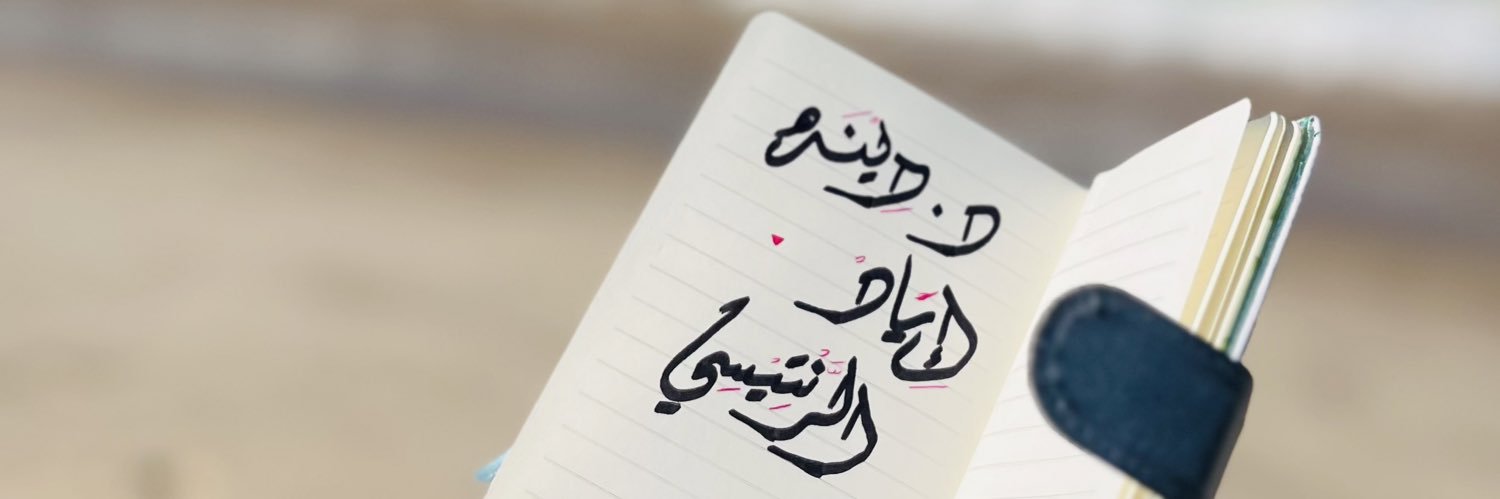 د. دينه
اياد
الرنتيسي